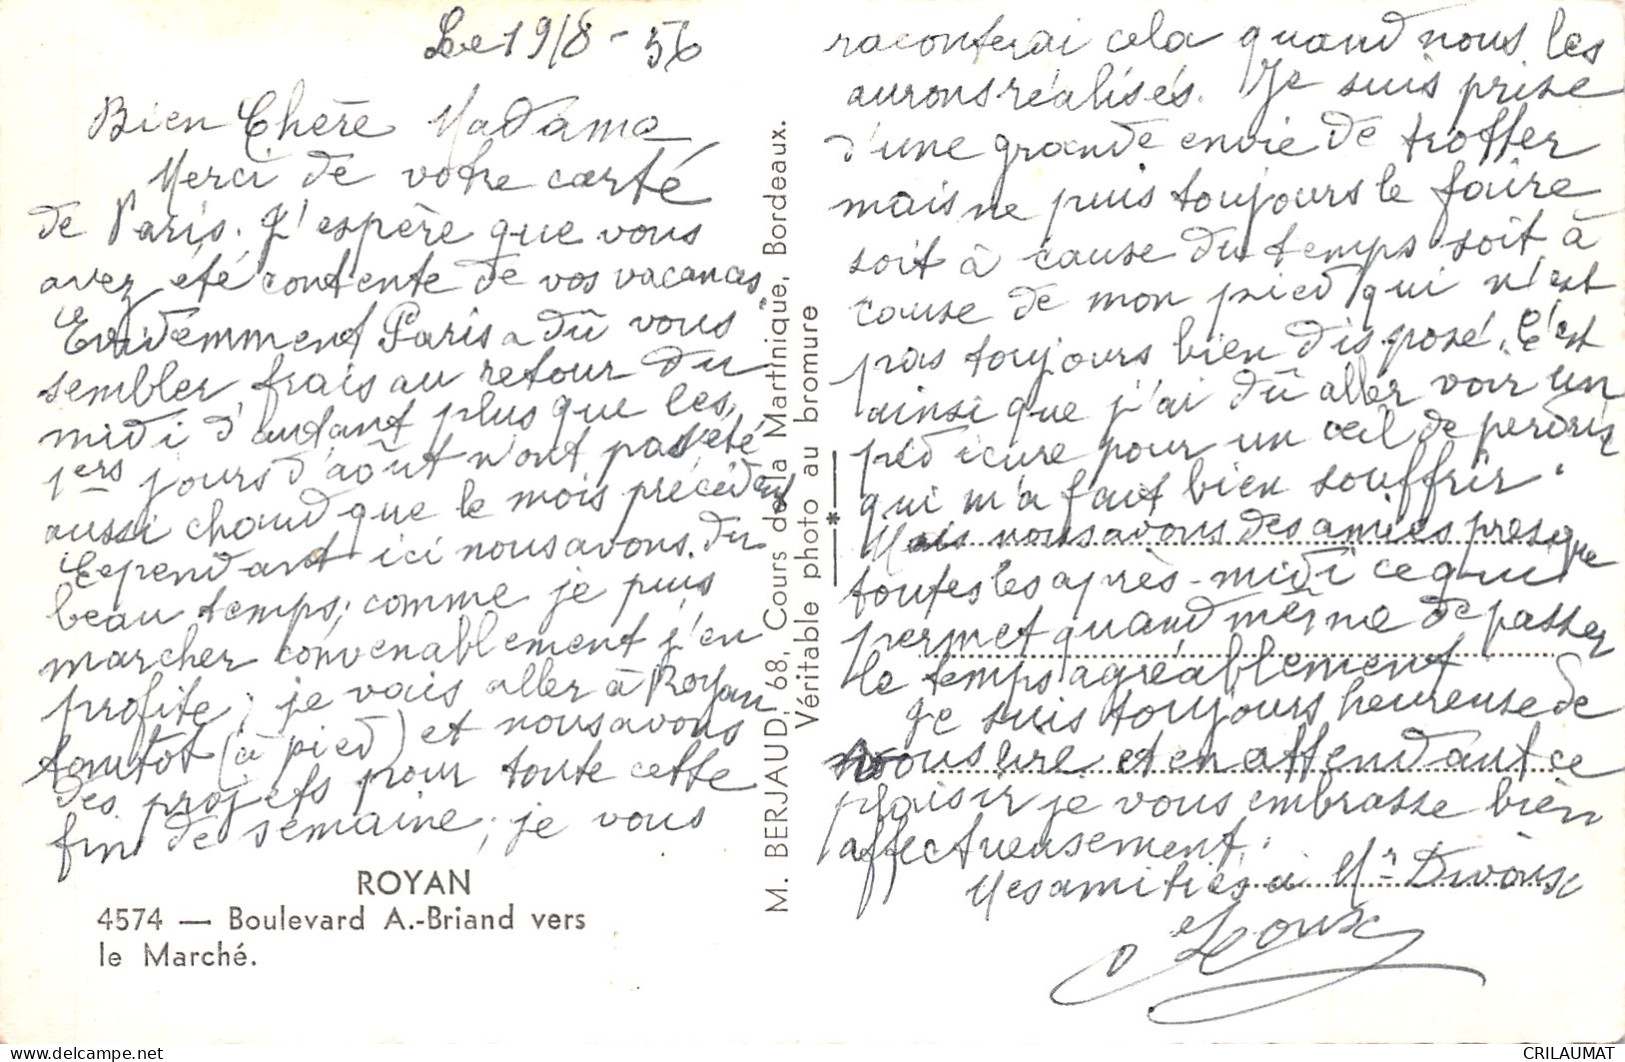 Le 19/8-56
Bien Chère Madame
Merci de votre carté
de Paris. J'espère que vous
avez été contente de vos vacances
Evidemment Paris a dû vous
sembler frais au retour du
midi d'autant plus que les
1ers jours d'août n'ont pas été
aussi chaud que le mois précédent
Cependant ici nous avons du
beau temps; comme je puis
marcher convenablement j'en
profite; je vais aller à Royan
tantôt (à pied) et nous avons
des projets pour toute cette
fin de semaine; je vous
ROYAN
4574 — Boulevard A.-Briand vers
le Marché.
M. BERJAUD, 68, Cours de la Martinique, Bordeaux.
Véritable photo au bromure
raconterai cela quand nous les
aurons réalisés. Je suis prise
d'une grande envie de trotter
mais ne puis toujours le faire
soit à cause du temps soit à
cause de mon pied qui n'est
pas toujours bien disposé. C'est
ainsi que j'ai dû aller voir un
pédicure pour un œil de perdrix
qui m'a fait bien souffrir.
Mais nous avons des amies presque
toutes les après-midi ce qui
permet quand même de passer
le temps agréablement
Je suis toujours heureuse de
vous lire et en attendant ce
plaisir je vous embrasse bien
affectueusement.
Mes amitiés à Mr
CRILAUMAT